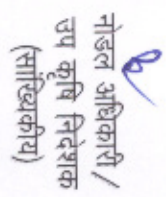 नोडल अधिकारी /
उप कृषि निदेशक
(सांख्यिकीय)